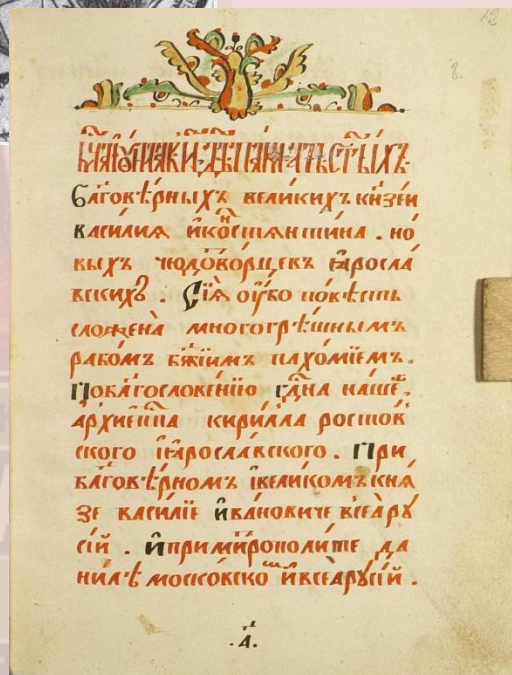 12
ПАМЯТЬ СТ҃ЫХЪ.
Бл҃говѣрныхъ великихъ кн҃зеи
василия и҆косⷩ҇тянтина . но
выхъ чюдⷪ҇творцевъ ꙗ҆росла
вскихъ . Сїѧ ѹ҆бо повѣсть
сложена многогрѣшнымъ
рабомъ бж҃їимъ пахомїемъ .
Побл҃гословенїю гдⷭ҇на нашеⷢ҇
архиепⷭ҇па кирилла ростов
ского иꙗ҆рославского . При
бл҃говѣрномъ ївеликомъ кня
зе василїе и҆вановиче всеа̀ рꙋ
сїй . И҆примитрополите да
нилѣ московскоⷨ ивсеа̀рꙋсїй .
.А҃.